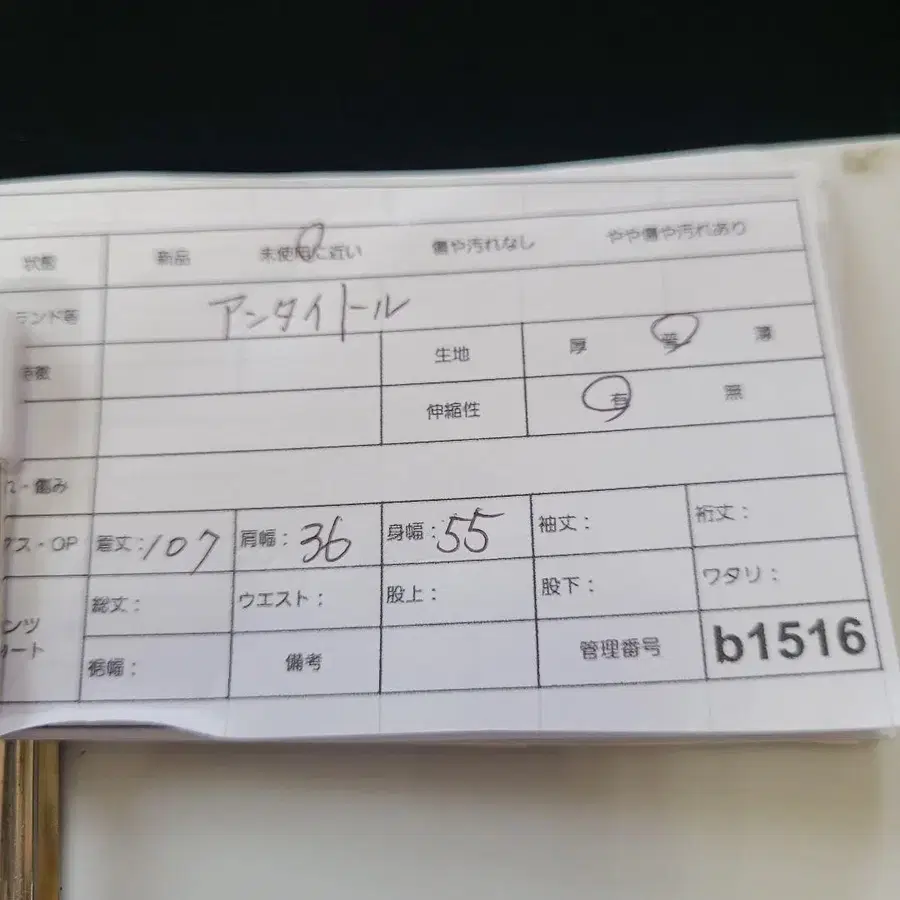 状態 新品 未使用に近い 傷や汚れなし やや傷や汚れあり
ランド等 アンタイトル
生地 厚 普 薄
特徴
伸縮性 有 無
れ・傷み
クス・OP 着丈:107 肩幅:36 身幅:55 袖丈: 裄丈:
総丈: ウエスト: 股上: 股下: ワタリ:
ンツ
カート
裾幅: 備考 管理番号 b1516